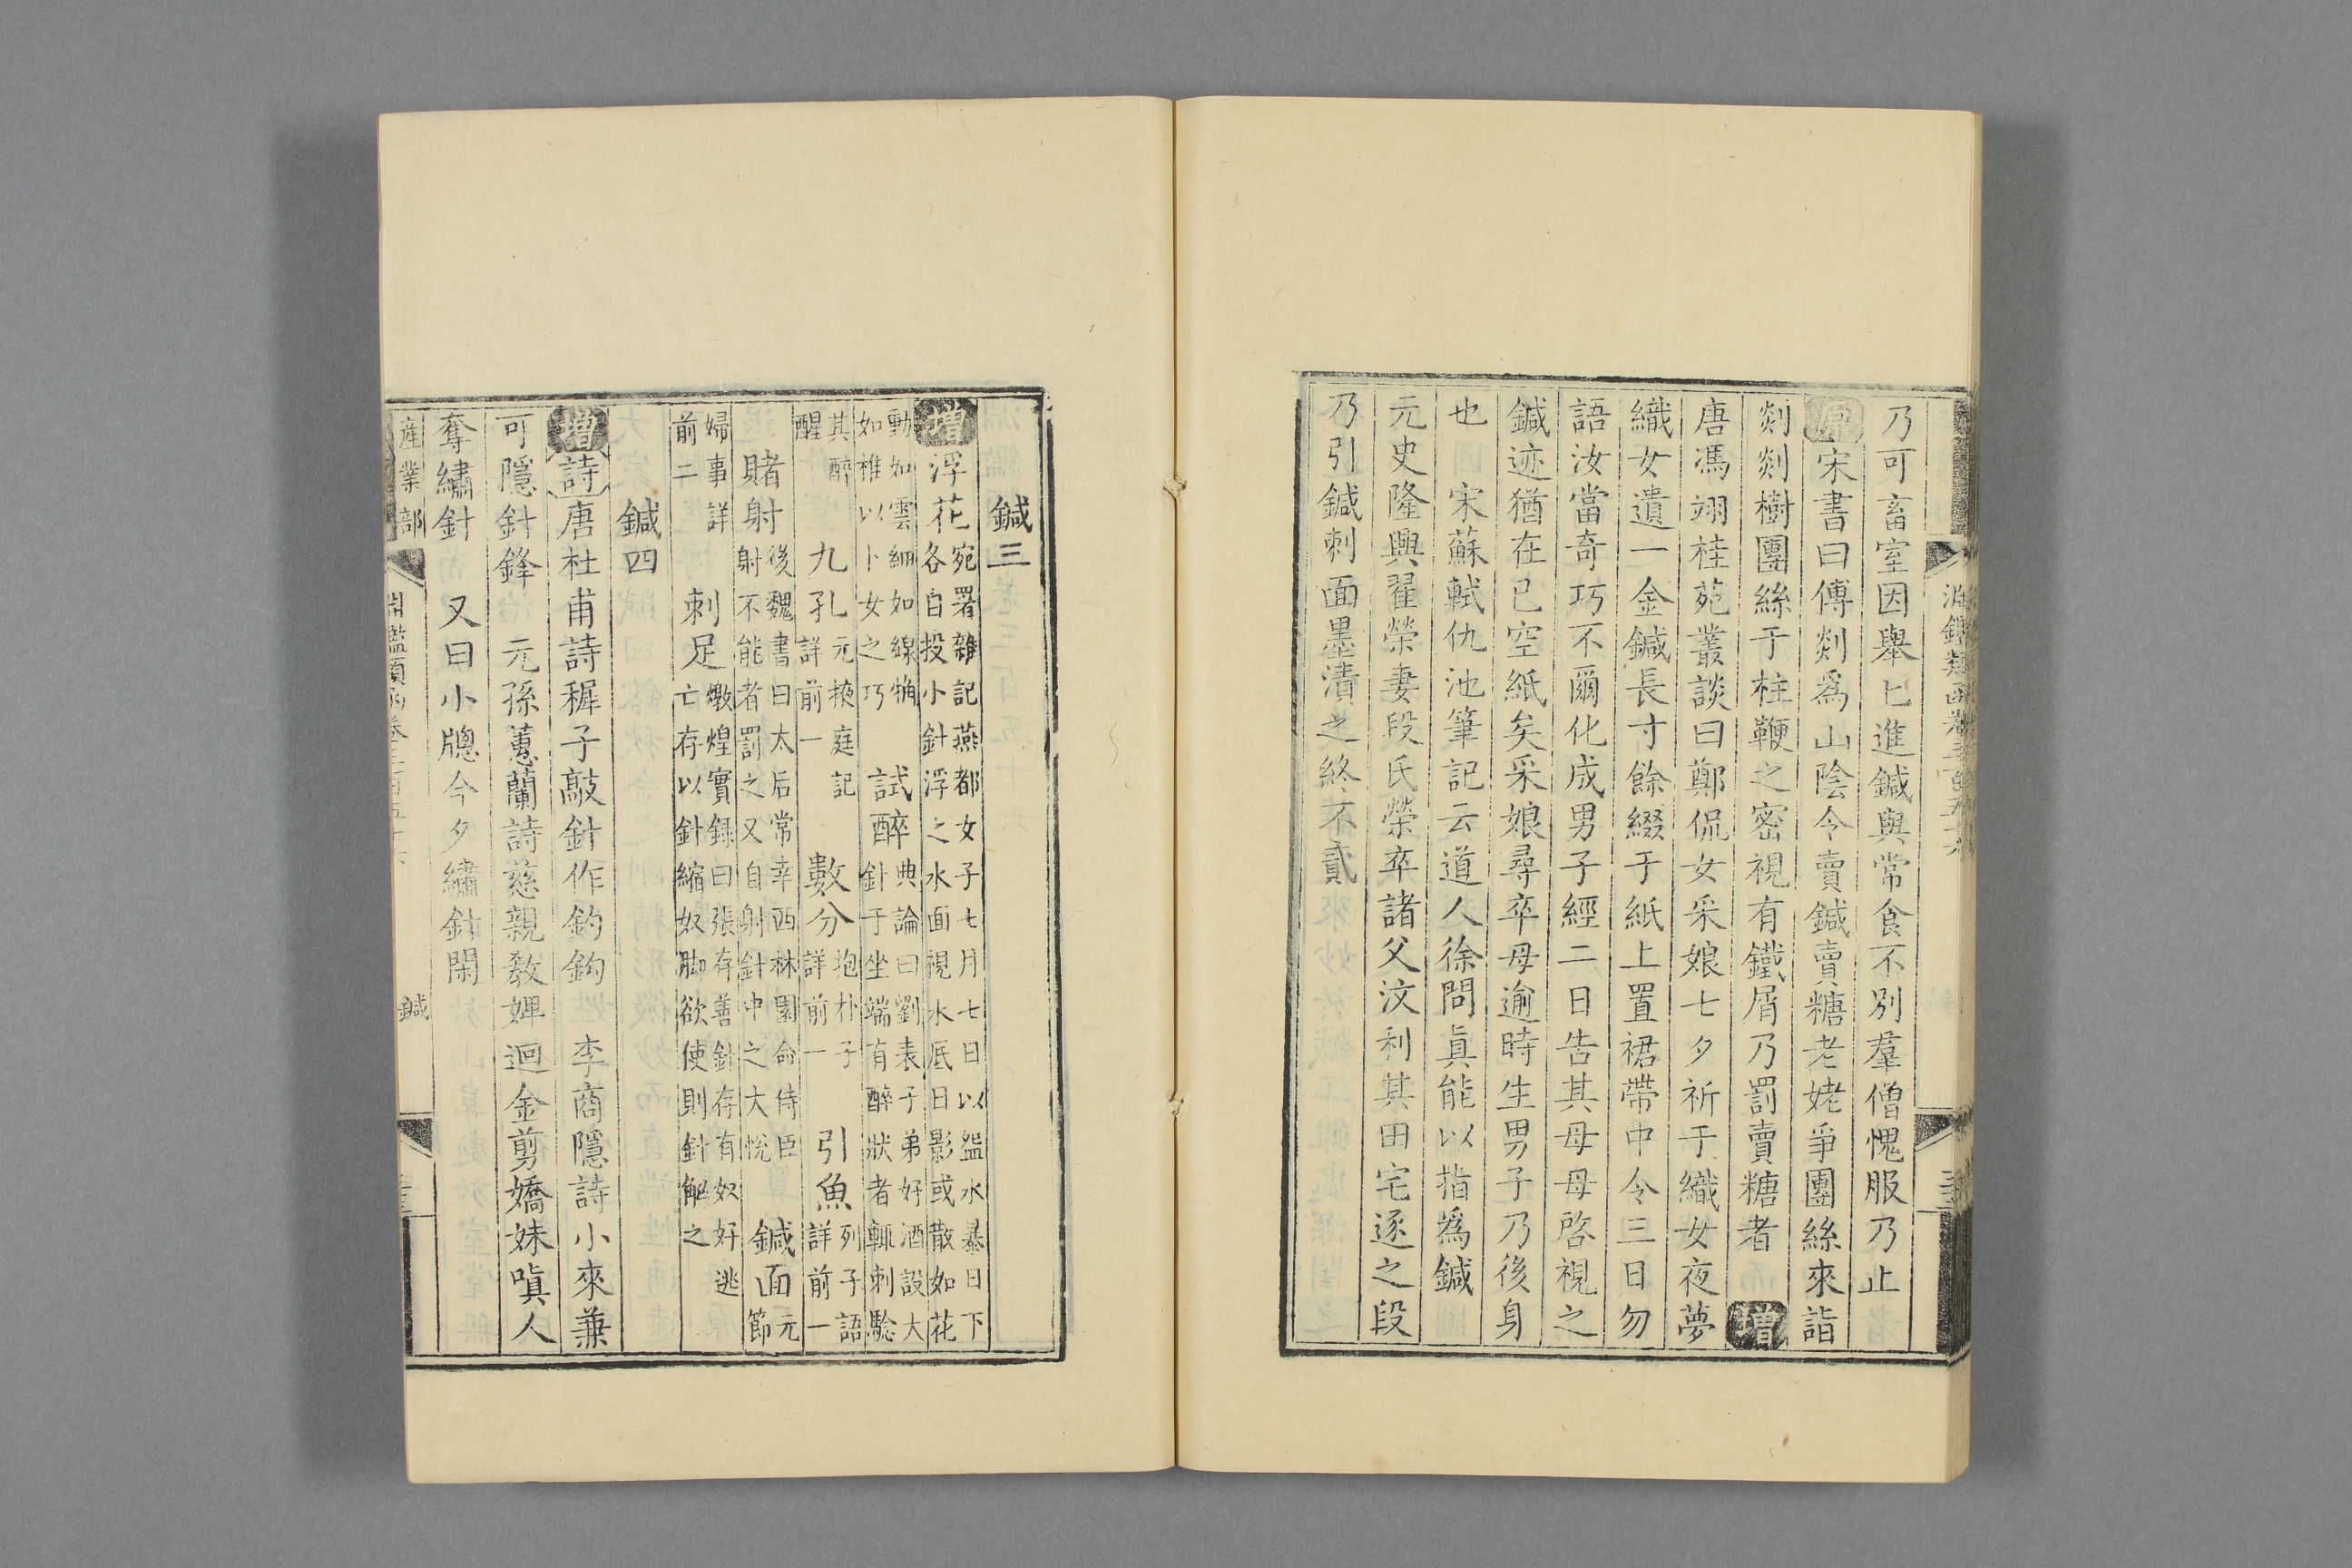 乃可畜室因舉匕進鍼與常食不別羣僧愧服乃止
原宋書曰傅剡爲山陰令賣鍼賣糖老姥爭團絲來詣
剡剡樹團絲于柱鞭之密視有鐵屑乃罰賣糖者 增
唐馮翊桂苑叢談曰鄭侃女采娘七夕祈于織女夜夢
織女遺一金鍼長寸餘綴于紙上置裙帶中令三日勿
語汝當奇巧不爾化成男子經二日告其母母啓視之
鍼迹猶在已空紙矣采娘尋卒母逾時生男子乃後身
也 宋蘇軾仇池筆記云道人徐問眞能以指爲鍼
元史隆興翟榮妻段氏榮卒諸父汶利其田宅逐之段
乃引鍼刺面墨漬之終不貳
鍼三
增浮花宛署雜記燕都女子七月七日以盌水暴日下各自投小針浮之水面視水底日影或散如花
動如雲細如線觕如椎以卜女之巧 試醉典論曰劉表子弟好酒設大針于坐端有醉狀者輒刺驗
其醉醒 九孔元掖庭記詳前一 數分抱朴子詳前一 引魚列子語詳前一
賭射後魏書曰太后常幸西林園命侍臣射不能者罰之又自射針中之大悅 鍼面元節
婦事詳前二 刺足燉煌實錄曰張存善針存有奴好逃亡存以針縮奴脚欲使則針解之
鍼四
增詩唐杜甫詩穉子敲針作釣鉤 李商隱詩小來兼
可隱針鋒 元孫蕙蘭詩慈親敎婢迴金剪嬌妹嗔人
奪繡針 又曰小牕今夕繡針閑
產業部 鍼